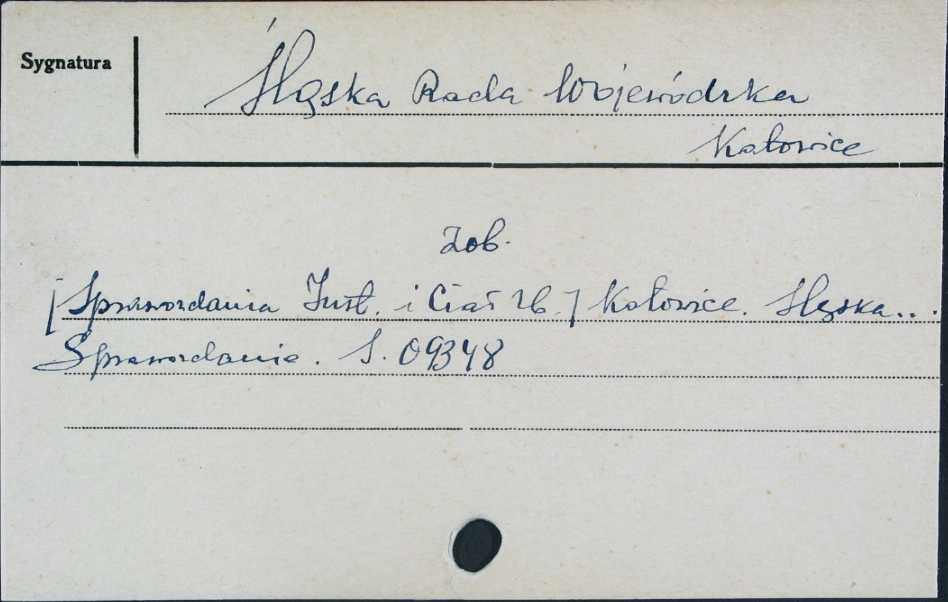 Sygnatura
Śląska Rada Wojewódzka
Katowice
Zob.
[Sprawozdania Inst. i Ciał Zb.] Katowice. Śląska...
Sprawozdanie. S. 09348